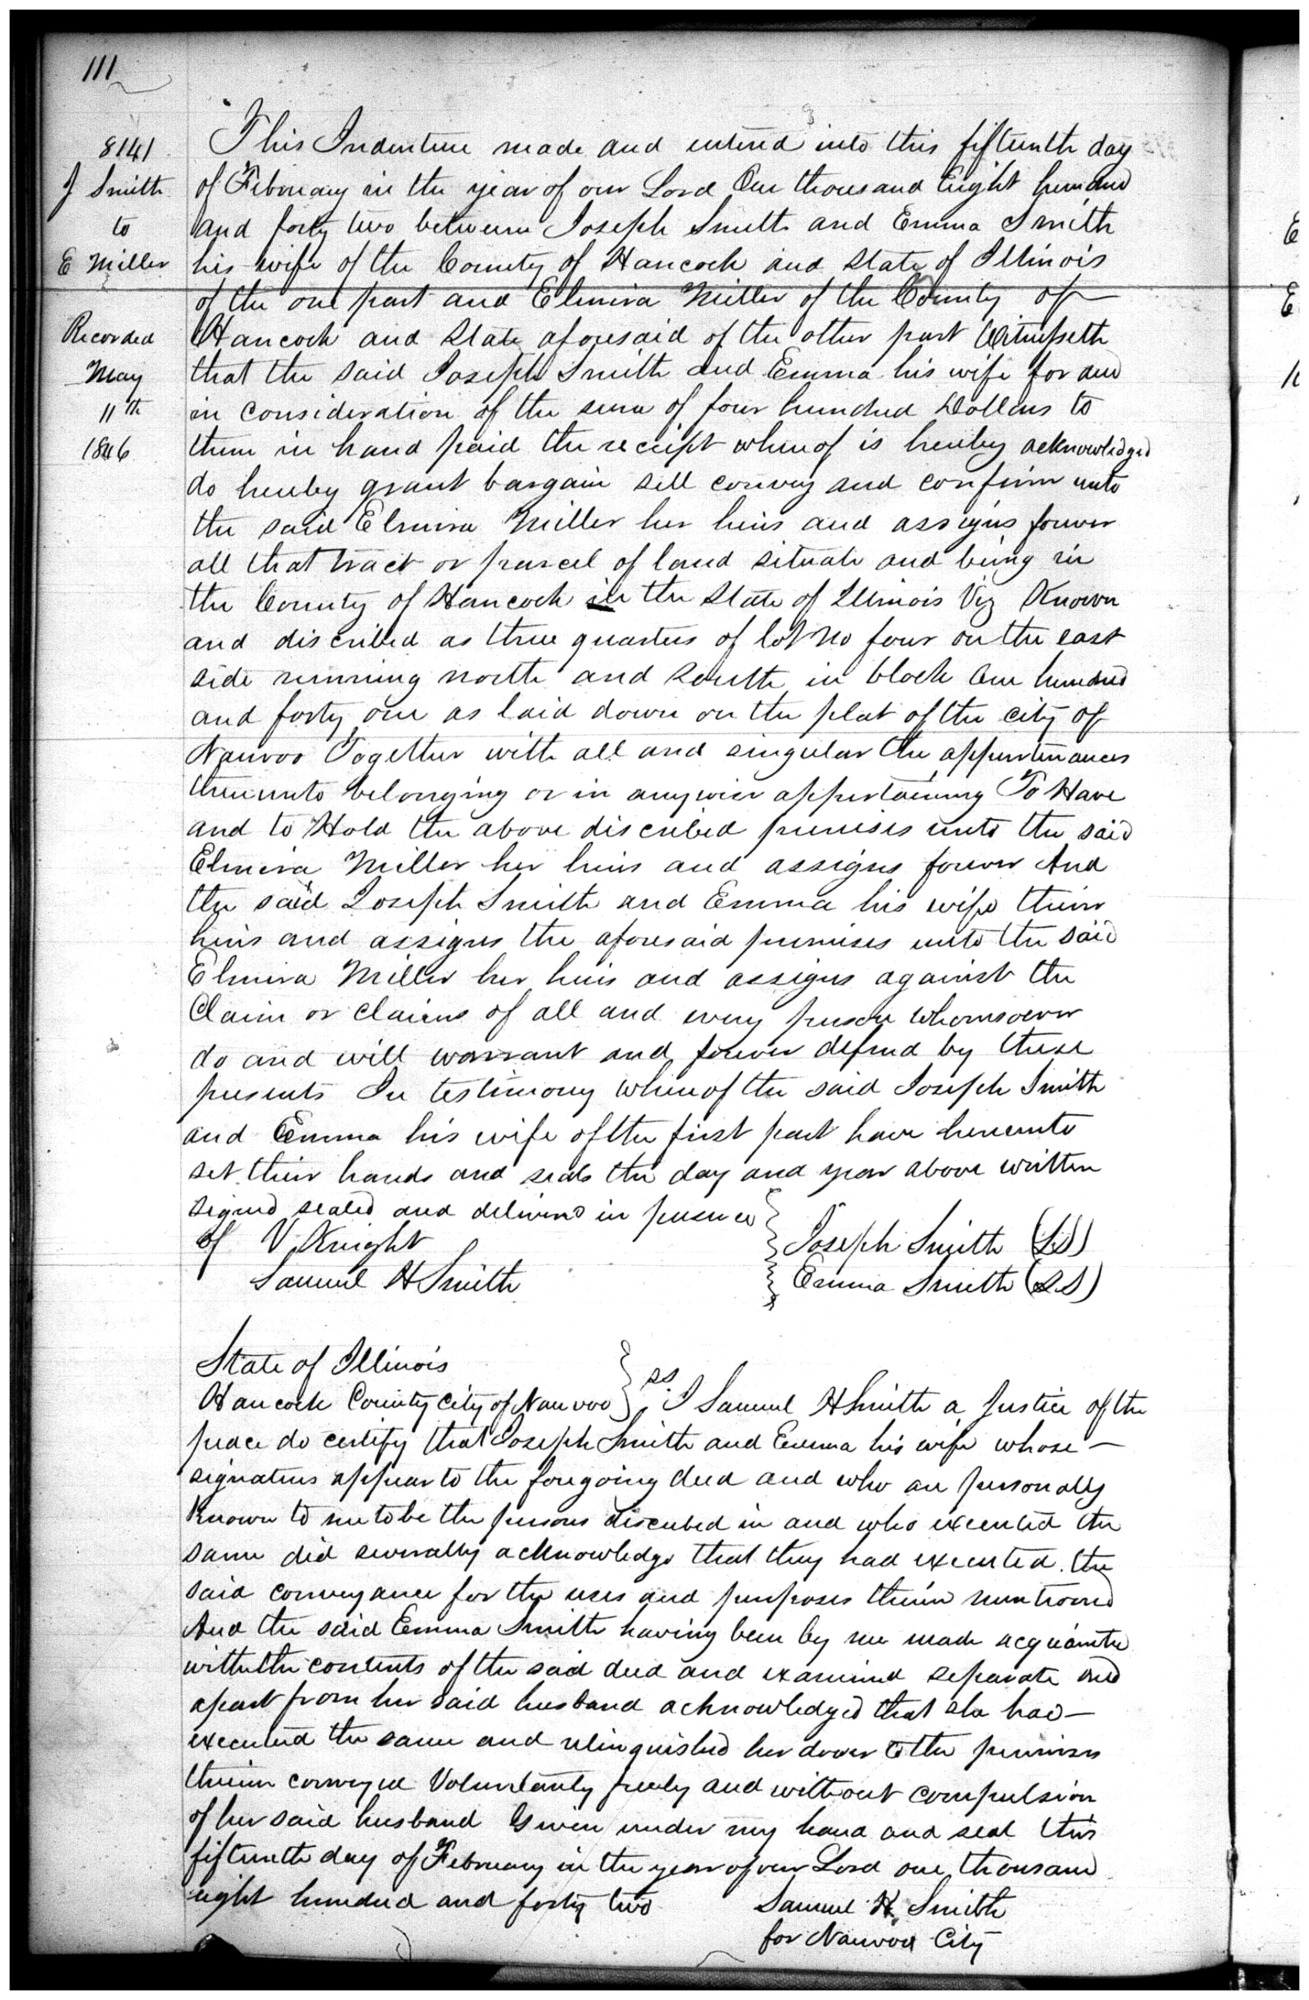 111
8141
J Smith
to
E Miller
Recorded
May
11th
1846
This Indenture made and entered into this fifteenth day
of February in the year of our Lord One thousand Eight hundred
and forty two between Joseph Smith and Emma Smith
his wife of the County of Hancock and State of Illinois
of the one part and Elmira Miller of the County of
Hancock and State aforesaid of the other part Witnesseth
that the said Joseph Smith and Emma his wife for and
in consideration of the sum of four hundred Dollars to
them in hand paid the receipt whereof is hereby acknowledged
do hereby grant bargain sell convey and confirm unto
the said Elmira Miller her heirs and assigns forever
all that tract or parcel of land situate and being in
the County of Hancock in the State of Illinois Viz Known
and discribed as three quarters of lot No four on the east
side running north and south in block One hundred
and forty one as laid down on the plat of the city of
Nauvoo Together with all and singular the appurtenances
thereunto belonging or in anywise appertaining To Have
and to Hold the above discribed premises unto the said
Elmira Miller her heirs and assigns forever And
the said Joseph Smith and Emma his wife their
heirs and assigns the aforesaid premises unto the said
Elmira Miller her heirs and assigns against the
Claim or claims of all and every person whomsoever
do and will warrant and forever defend by these
presents In testimony whereof the said Joseph Smith
and Emma his wife of the first part have hereunto
set their hands and seals the day and year above written
signed sealed and delivered in presence
of V Knight
Joseph Smith (LS)
Samuel H Smith
Emma Smith (LS)
State of Illinois
Hancock County City of Nauvoo } ss. I Samuel H Smith a Justice of the
peace do certify that Joseph Smith and Emma his wife whose —
signatures appear to the foregoing deed and who are personally
Known to me to be the persons discribed in and who executed the
same did severally acknowledge that they had executed the
said conveyance for the uses and purposes therein mentioned
And the said Emma Smith having been by me made acquainted
with the contents of the said deed and examined separate and
apart from her said husband acknowledged that she had —
executed the same and relinquished her dower to the premises
therein conveyed Voluntarily freely and without compulsion
of her said husband Given under my hand and seal this
fifteenth day of February in the year of our Lord one thousand
eight hundred and forty two
Samuel H. Smith
for Nauvoo City